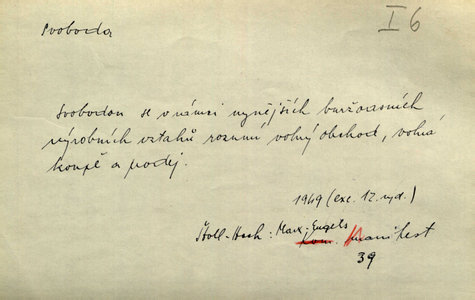 Svoboda
I 6
Svobodou se v rámci nynějších buržoasních
výrobních vztahů rozumí volný obchod, volná
koupě a prodej.
1949 (exc. 12. vyd.)
Štoll-Hach: Marx-Engels
Kom. Manifest
39